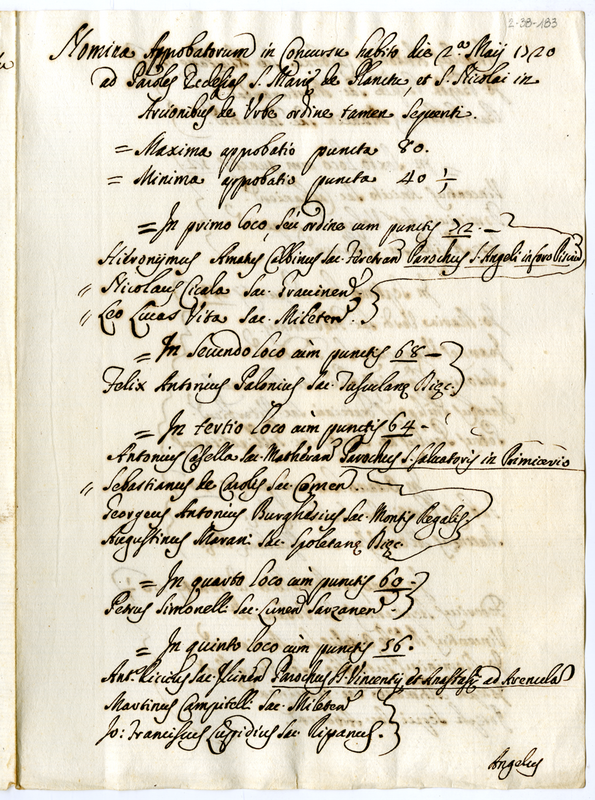 2-38-183
Nomina Approbatorum in Concursu habito die 2.a Maij 1720
ad Paroles Ecclesias S. Mariæ de Planctu, et S. Nicolai in
Arcionibus de Urbe ordine tamen sequenti.
= Maxima approbatio puncta 80.
= Minima approbatio puncta 40 1/2
= In primo loco, seu ordine cum punctis 72. -
Hieronymus Amatus Calbinus Sac. Feretran Parochus S. Angeli in foro Piscium
" Nicolaus Cicala Sac. Gravinen.
" Leo Lucas Vita Sac. Mileten.
= In Secundo loco cum punctis 68 -
Felix Antonius Palonius Sac. Tusculanę Dięc.
= In tertio loco cum punctis 64 -
Antonius Casella Sac. Matheran Parochus S. Salvatoris in Primicerio
" Sebastianus de Carolis Sac. Comen
Georgeus Antonius Burghesius Sac. Montis Regalis.
Augustinus Marani Sac. Spoletanę Dięc.
= In quarto loco cum punctis 60 -
Petrus Simonelli Sac. Lunen Sarzanen -
= In quinto loco cum punctis 56.
Ant. Sac. Parochus S. Vincentij, et Anastasij ad Arenula
Martinus Campitelli Sac. Mileten
Jo: Franciscus Sac. Ripanus.
Angelus